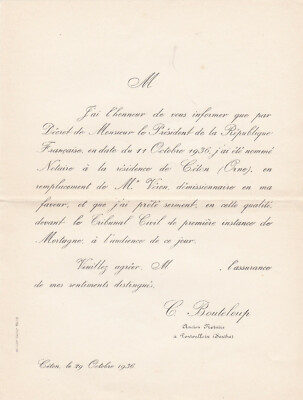 M
J'ai l'honneur de vous informer que par
Décret de Monsieur le Président de la République
Française, en date du 11 Octobre 1936, j'ai été nommé
Notaire à la résidence de Céton (Orne), en
remplacement de Me Viron, démissionnaire en ma
faveur, et que j'ai prêté serment, en cette qualité,
devant le Tribunal Civil de première instance de
Mortagne, à l'audience de ce jour.
Veuillez agréer, M l'assurance
de mes sentiments distingués.
C. Bouteloup
Ancien Notaire
à
Céton, le 29 Octobre 1936